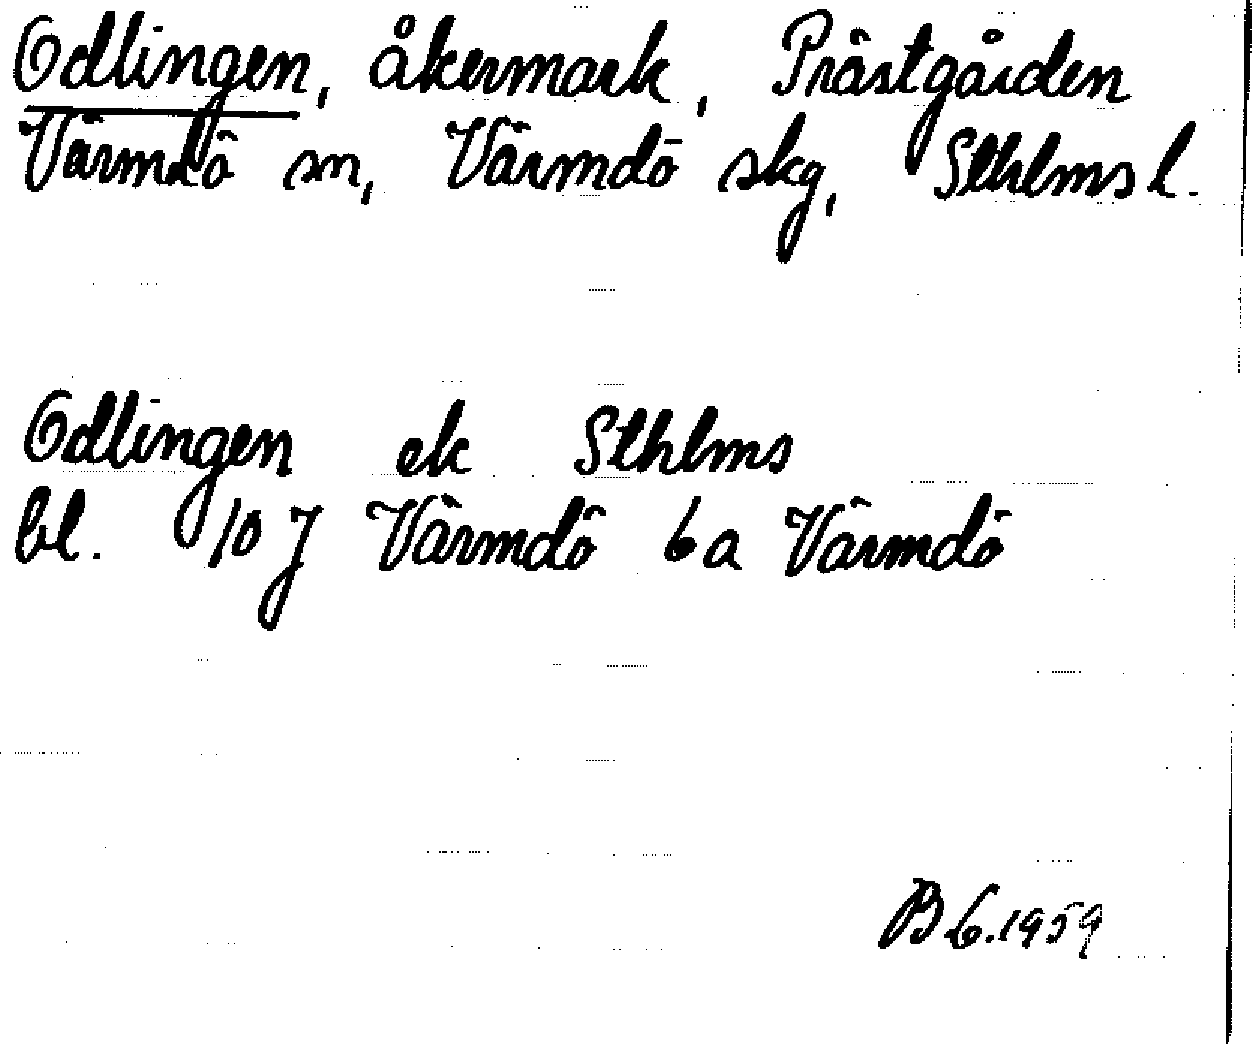 Odlingen, åkermark, Prästgården
Värmdö sn, Värmdö skg, Sthlms l.
Odlingen ek Sthlms
bl. 10 J Värmdö 6a Värmdö
B 6.1959